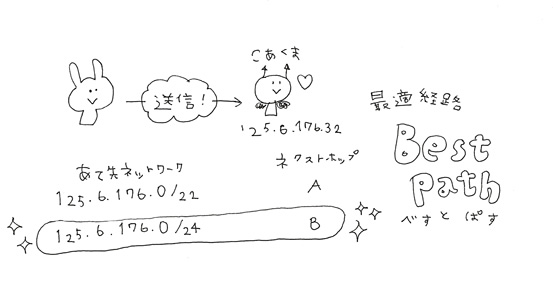 こあくま
送信!
125.6.176.32
最適経路
Best
path
べすと ぱす
あて先ネットワーク ネクストホップ
125.6.176.0/22 A
125.6.176.0/24 B